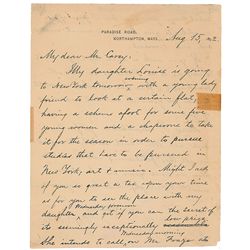 PARADISE ROAD,
NORTHAMPTON, MASS.
Aug 15,
My dear Mr. Carey.
My daughter Louise is going
evening
to New York tomorrow with a young lady
friend to look at a certain flat,
having a scheme afoot for some five
young women and a chaperone to take
it for the season in order to pursue
studies that have to be pursued in
New York, art & music. Might I ask
if so great a tax upon your time
as for you to see the place with my
Wednesday morning
daughter, and get if you can the secret of
low price
its seemingly exceptionally
Wednesday morning
She intends to call, on Mr.